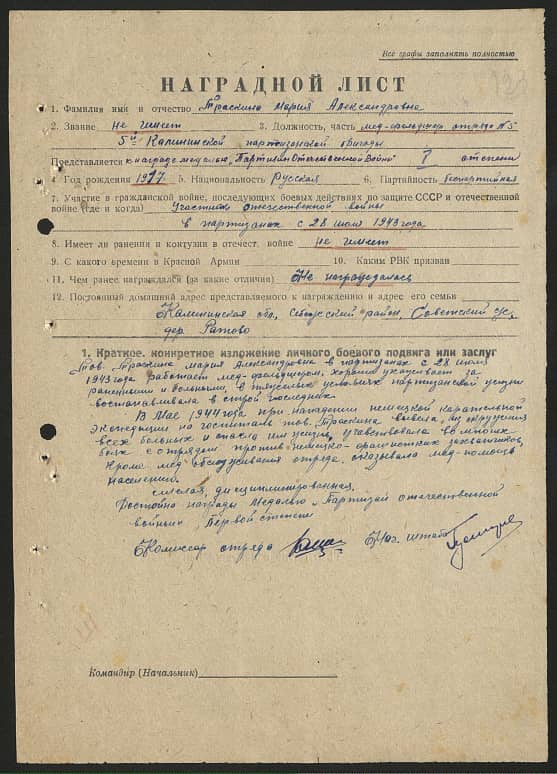 Все графы заполнять полностью
НАГРАДНОЙ ЛИСТ
1. Фамилия имя и отчество Траскина Мария Александровна
2. Звание Не имеет 3. Должность, часть мед-фельдшер отряда №5
5й Калининской партизанской бригады
Представляется к награде медалью „Партизан Отечественной Войны" I степени
4. Год рождения 1917 5. Национальность Русская 6. Партийность беспартийная
7. Участие в гражданской войне, последующих боевых действиях по защите СССР и отечественной
войне (где и когда) Участник отечественной войны
в партизанах с 28 июля 1943 года
8. Имеет ли ранения и контузии в отечест. войне не имеет
9. С какого времени в Красной Армии 10. Каким РВК призван
11. Чем ранее награждался (за какие отличия) Не награждалась
12. Постоянный домашний адрес представляемого к награждению и адрес его семьи
Калининская обл, Себежский район, Советский с/с,
дер. Ратово
1. Краткое, конкретное изложение личного боевого подвига или заслуг
Тов. Траскина Мария Александровна в партизанах с 28 июля
1943 года работает мед-фельдшером, хорошо ухаживает за
раненными и больными, в тяжелых условиях партизанской жизни
востанавливала в строй последних.
В Мае 1944 года при нападении немецкой карательной
экспедиции на госпиталь тов. Траскина вывела из окружения
всех больных и спасла им жизнь, участвовала во многих
боях с отрядом против немецко-фашистских захватчиков,
Кроме мед-обслуживания отряда, оказывала мед-помощь
населению.
Смелая, дисциплинированная,
Достойна награды Медалью „Партизан отечественной
войны" Первой степени
Комиссар отряда Нач. штаба
Командир (Начальник)